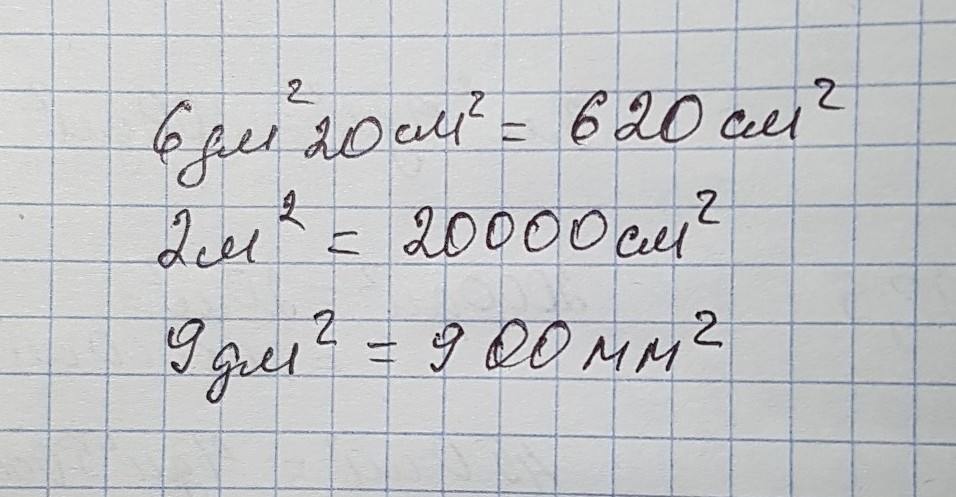 6дм² 20см² = 620см²
2м² = 20000см²
9дм² = 900мм²